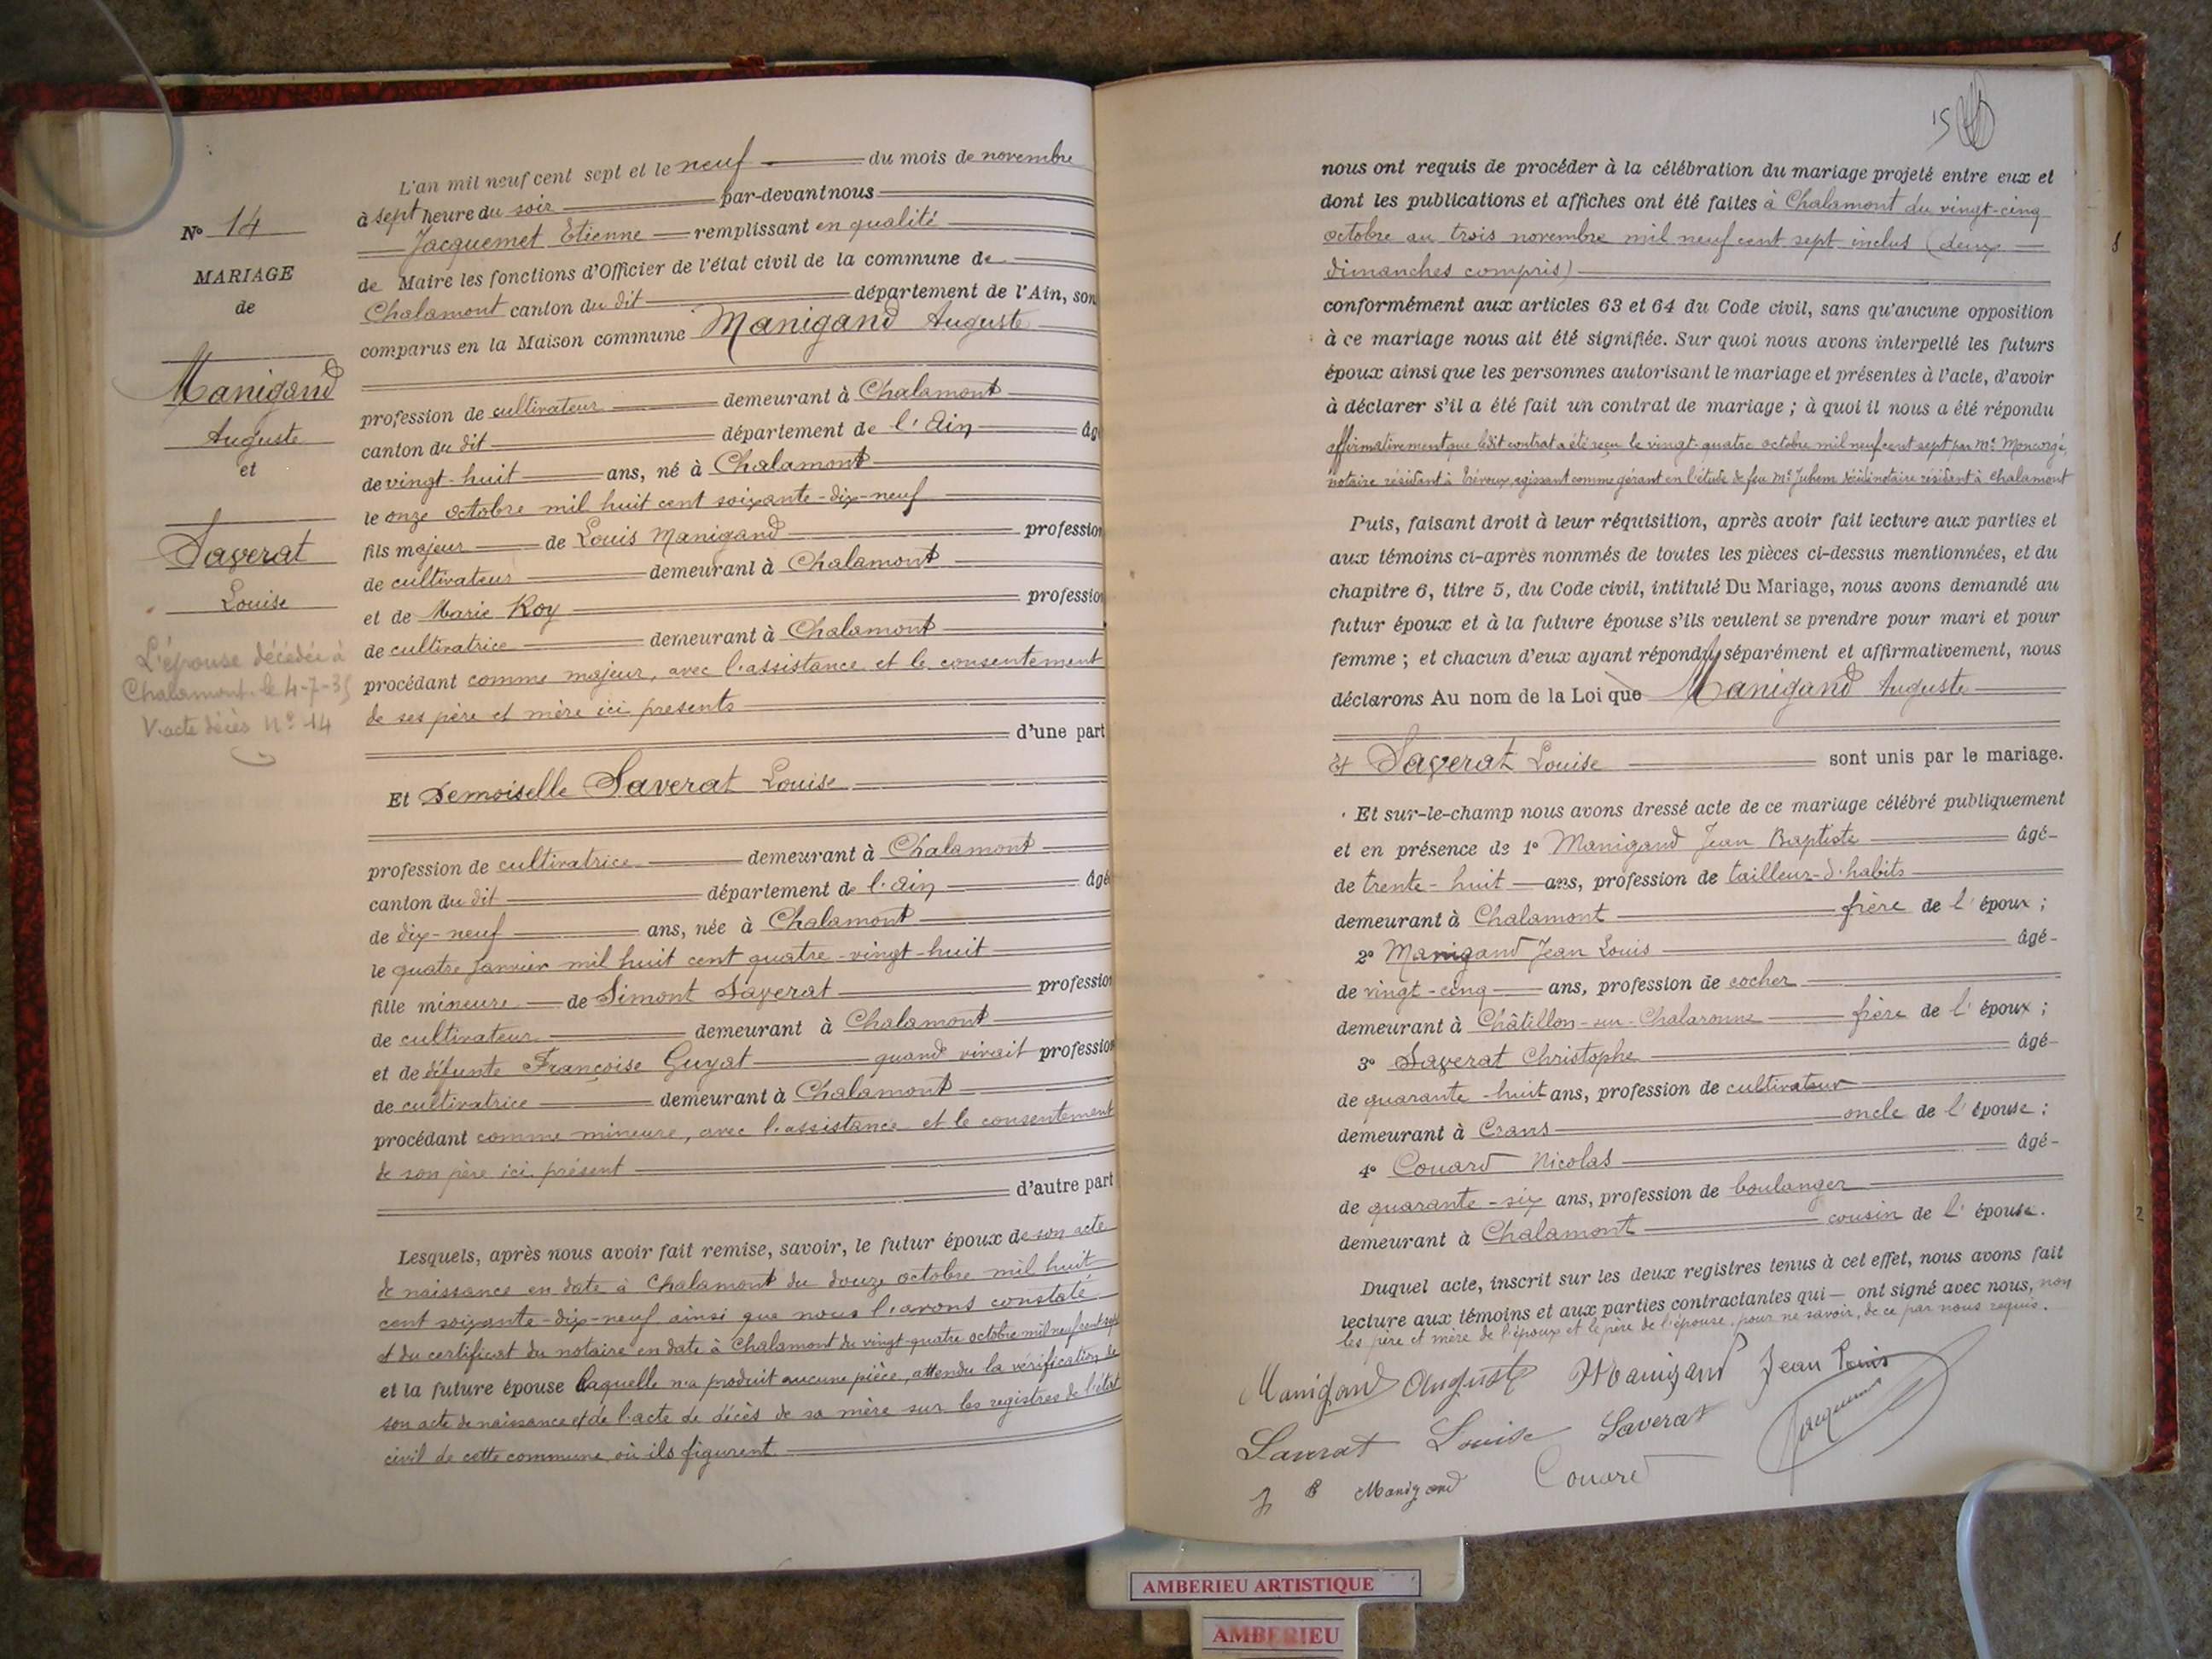 N° 14
MARIAGE
de
Manigand
Auguste
et
Saverat
Louise
L'épouse décédée à
Chalamont le 4-7-35
V. acte décès N° 14
L'an mil neuf cent sept et le neuf du mois de novembre
à sept heure du soir par-devant nous
Jacquemet Etienne remplissant en qualité
de Maire les fonctions d'Officier de l'état civil de la commune de
Chalamont canton du dit département de l'Ain, son
comparus en la Maison commune Manigand Auguste
profession de cultivateur demeurant à Chalamont
canton du dit département de l'Ain âgé
de vingt-huit ans, né à Chalamont
le onze octobre mil huit cent soixante-dix-neuf
fils majeur de Louis Manigand profession
de cultivateur demeurant à Chalamont
et de Marie Roy profession
de cultivatrice demeurant à Chalamont
procédant comme majeur, avec l'assistance et le consentement
de ses père et mère ici présents
d'une part
Et Demoiselle Saverat Louise
profession de cultivatrice demeurant à Chalamont
canton du dit département de l'Ain âgé
de dix-neuf ans, née à Chalamont
le quatre Janvier mil huit cent quatre-vingt-huit
fille mineure de Simont Saverat profession
de cultivateur demeurant à Chalamont
et de défunte Françoise Guyat quand vivait profession
de cultivatrice demeurant à Chalamont
procédant comme mineure, avec l'assistance et le consentement
de son père ici présent
d'autre part
Lesquels, après nous avoir fait remise, savoir, le futur époux de son acte
de naissance en date à Chalamont du douze octobre mil huit
cent soixante-dix-neuf ainsi que nous l'avons constaté
et du certificat du notaire en date à Chalamont du vingt-quatre octobre mil neuf cent sept
et la future épouse laquelle n'a produit aucune pièce, attendu la vérification de
son acte de naissance et de l'acte de décès de sa mère sur les registres de l'état
civil de cette commune où ils figurent
15
nous ont requis de procéder à la célébration du mariage projeté entre eux et
dont les publications et affiches ont été faites à Chalamont du vingt-cinq
octobre au trois novembre mil neuf cent sept inclus (deux
dimanches compris)
conformément aux articles 63 et 64 du Code civil, sans qu'aucune opposition
à ce mariage nous ait été signifiée. Sur quoi nous avons interpellé les futurs
époux ainsi que les personnes autorisant le mariage et présentes à l'acte, d'avoir
à déclarer s'il a été fait un contrat de mariage ; à quoi il nous a été répondu
affirmativement que ledit contrat a été reçu le vingt-quatre octobre mil neuf cent sept par Me Moncorgé,
notaire résidant à Trévoux, agissant comme gérant en l'étude de feu Me Juhem décédé notaire résidant à Chalamont
Puis, faisant droit à leur réquisition, après avoir fait lecture aux parties et
aux témoins ci-après nommés de toutes les pièces ci-dessus mentionnées, et du
chapitre 6, titre 5, du Code civil, intitulé Du Mariage, nous avons demandé au
futur époux et à la future épouse s'ils veulent se prendre pour mari et pour
femme ; et chacun d'eux ayant répondu séparément et affirmativement, nous
déclarons Au nom de la Loi que Manigand Auguste
Et Saverat Louise sont unis par le mariage.
Et sur-le-champ nous avons dressé acte de ce mariage célébré publiquement
et en présence de 1° Manigand Jean Baptiste âgé
de trente-huit ans, profession de tailleur-d'habits
demeurant à Chalamont frère de l'époux ;
2° Manigand Jean Louis âgé
de vingt-cinq ans, profession de cocher
demeurant à Châtillon-sur-Chalaronne frère de l'époux ;
3° Saverat Christophe âgé
de quarante-huit ans, profession de cultivateur
demeurant à Crans oncle de l'épouse ;
4° Couard Nicolas âgé
de quarante-six ans, profession de boulanger
demeurant à Chalamont cousin de l'épouse.
Duquel acte, inscrit sur les deux registres tenus à cet effet, nous avons fait
lecture aux témoins et aux parties contractantes qui ont signé avec nous, non
les père et mère de l'époux et le père de l'épouse, pour ne savoir, de ce par nous requis.
Manigand Auguste Manigand Jean Louis
Saverat Louise Saverat Jacquemet
J B Manigand Couard
AMBERIEU ARTISTIQUE
AMBERIEU